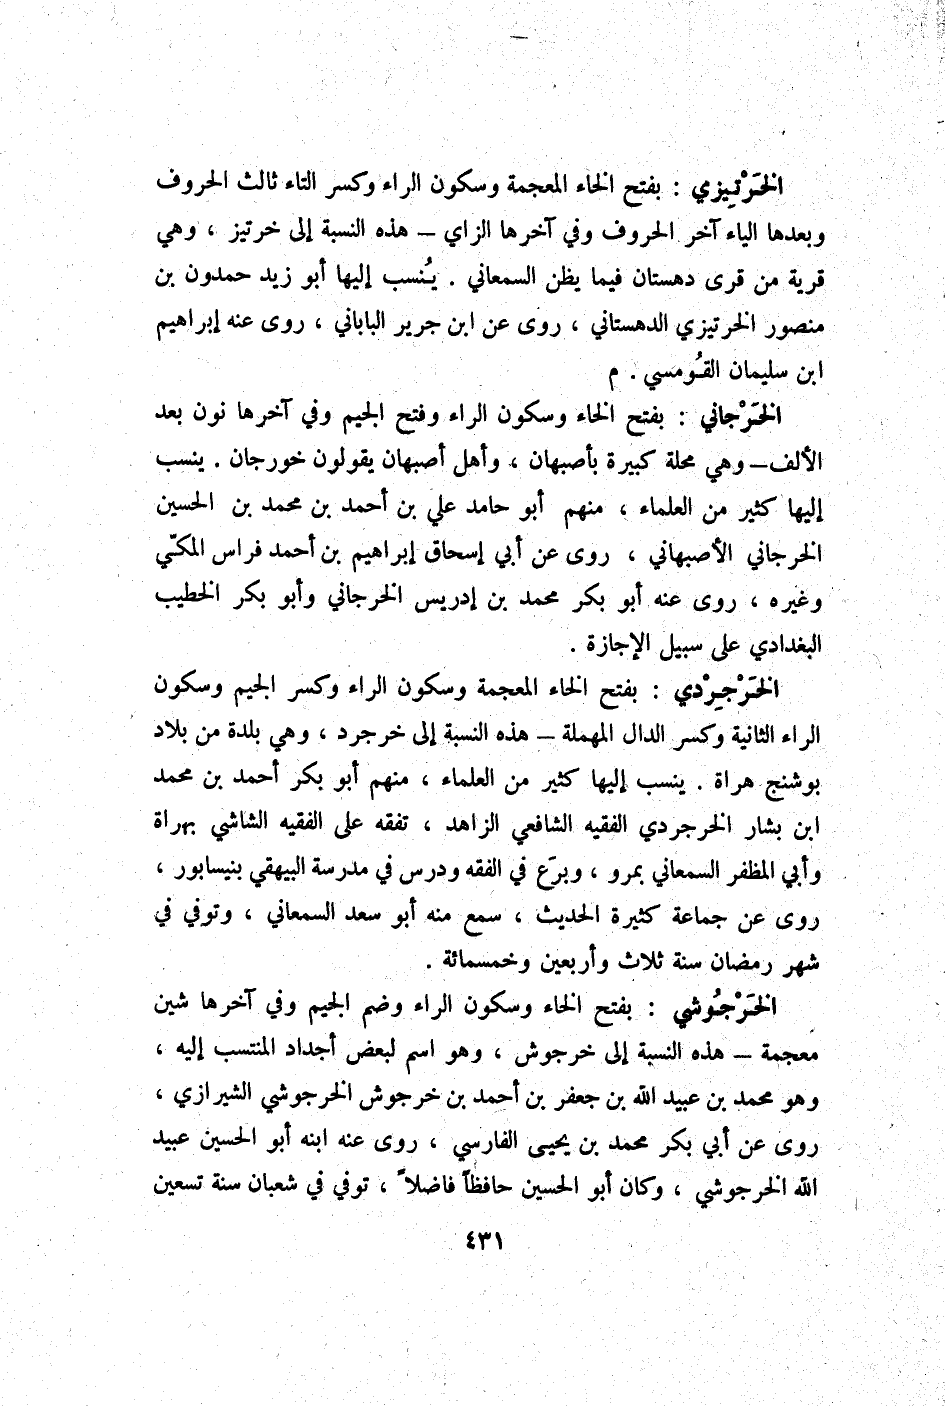 الخَرْتِيزي : بفتح الخاء المعجمة وسكون الراء وكسر التاء ثالث الحروف
وبعدها الياء آخر الحروف وفي آخرها الزاي – هذه النسبة إلى خرتيز ، وهي
قرية من قرى دهستان فيما يظن السمعاني . يُنسب إليها أبو زيد حمدون بن
منصور الخرتيزي الدهستاني ، روى عن ابن جرير الباباني ، روى عنه إبراهيم
ابن سليمان القُومسي . م
الخَرْجاني : بفتح الخاء وسكون الراء وفتح الجيم وفي آخرها نون بعد
الألف– وهي محلة كبيرة بأصبهان ، وأهل أصبهان يقولون خورجان . ينسب
إليها كثير من العلماء ، منهم أبو حامد علي بن أحمد بن محمد بن الحسين
الخرجاني الأصبهاني ، روى عن أبي إسحاق إبراهيم بن أحمد فراس المكّي
وغيره ، روى عنه أبو بكر محمد بن إدريس الخرجاني وأبو بكر الخطيب
البغدادي على سبيل الإجازة .
الخَرْجِرْدي : بفتح الخاء المعجمة وسكون الراء وكسر الجيم وسكون
الراء الثانية وكسر الدال المهملة – هذه النسبة إلى خرجرد ، وهي بلدة من بلاد
بوشنج هراة . ينسب إليها كثير من العلماء ، منهم أبو بكر أحمد بن محمد
ابن بشار الخرجردي الفقيه الشافعي الزاهد ، تفقه على الفقيه الشاشي بهراة
وأبي المظفر السمعاني بمرو ، وبرَع في الفقه ودرس في مدرسة البيهقي بنيسابور ،
روى عن جماعة كثيرة الحديث ، سمع منه أبو سعد السمعاني ، وتوفي في
شهر رمضان سنة ثلاث وأربعين وخمسمائة .
الخَرْجُوشي : بفتح الخاء وسكون الراء وضم الجيم وفي آخرها شين
معجمة – هذه النسبة إلى خرجوش ، وهو اسم لبعض أجداد المنتسب إليه ،
وهو محمد بن عبيد الله بن جعفر بن أحمد بن خرجوش الخرجوشي الشيرازي ،
روى عن أبي بكر محمد بن يحيى الفارسي ، روى عنه ابنه أبو الحسين عبيد
الله الخرجوشي ، وكان أبو الحسين حافظاً فاضلاً ، توفي في شعبان سنة تسعين
٤٣١